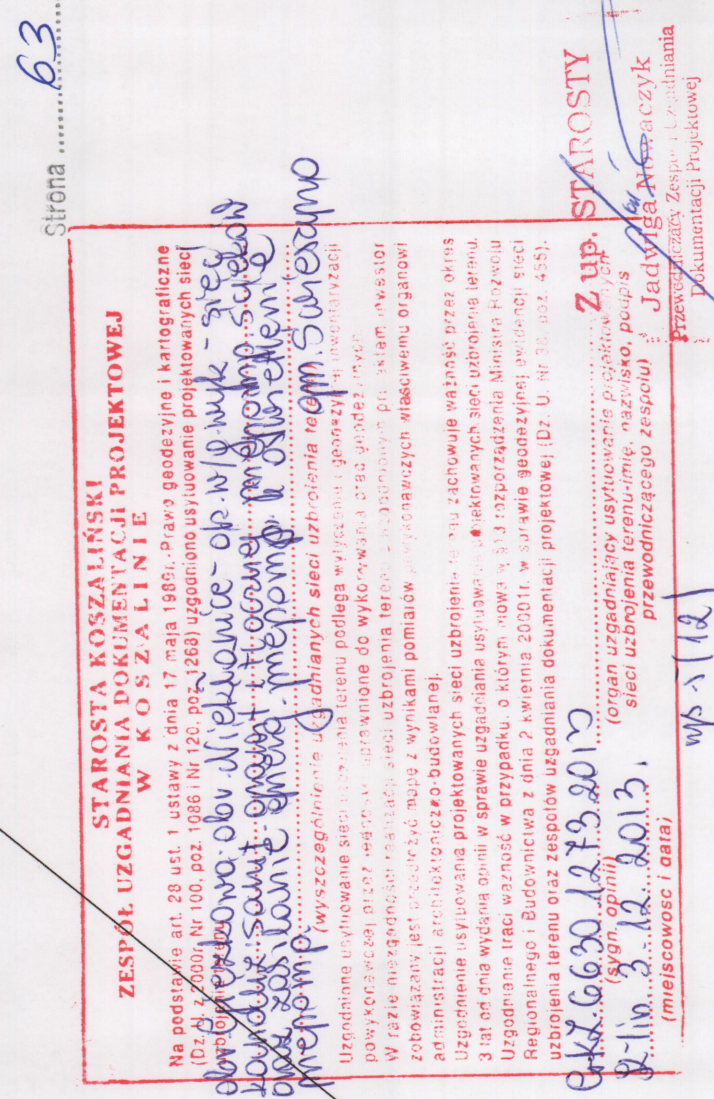 Strona ........ 63
STAROSTA KOSZALIŃSKI
ZESPÓŁ UZGADNIANIA DOKUMENTACJI PROJEKTOWEJ
W KOSZALINIE
Na podstawie art. 28 ust. 1 ustawy z dnia 17 maja 1989r.-Prawo geodezyjne i kartograficzne
(Dz.U. z 2000r. Nr 100, poz. 1086 i Nr 120, poz. 1268) uzgodniono usytuowanie projektowanych sieci
obr. Niekłonice - sieć
kanaliz. sanit.
oraz zasilanie
przepomp.
(wyszczególnienie uzgadnianych sieci uzbrojenia terenu)
gm. Świeszyno
Uzgodnione usytuowanie sieci uzbrojenia terenu podlega wytyczeniu i geodezyjnej inwentaryzacji
powykonawczej przez jednostki uprawnione do wykonywania prac geodezyjnych.
W razie niezgodności realizacji sieci uzbrojenia terenu z uzgodnionym projektem, inwestor
zobowiązany jest przedłożyć mapę z wynikami pomiarów powykonawczych właściwemu organowi
administracji architektoniczno-budowlanej.
Uzgodnienie usytuowania projektowanych sieci uzbrojenia terenu zachowuje ważność przez okres
3 lat od dnia wydania opinii w sprawie uzgadniania usytuowania projektowanych sieci uzbrojenia terenu.
Uzgodnienie traci ważność w przypadku, o którym mowa w § 13 rozporządzenia Ministra Rozwoju
Regionalnego i Budownictwa z dnia 2 kwietnia 20001r. w sprawie geodezyjnej ewidencji sieci
uzbrojenia terenu oraz zespołów uzgadniania dokumentacji projektowej (Dz. U. Nr 38, poz. 455).
6630.1273.2013
(sygn. opinii)
3.12.2013.
(miejscowość i data)
(organ uzgadniający usytuowanie projektowanych
sieci uzbrojenia terenu-imię, nazwisko, podpis
przewodniczącego zespołu)
Z up. STAROSTY
Jadwiga Nowaczyk
Przewodniczący Zespołu Uzgadniania
Dokumentacji Projektowej